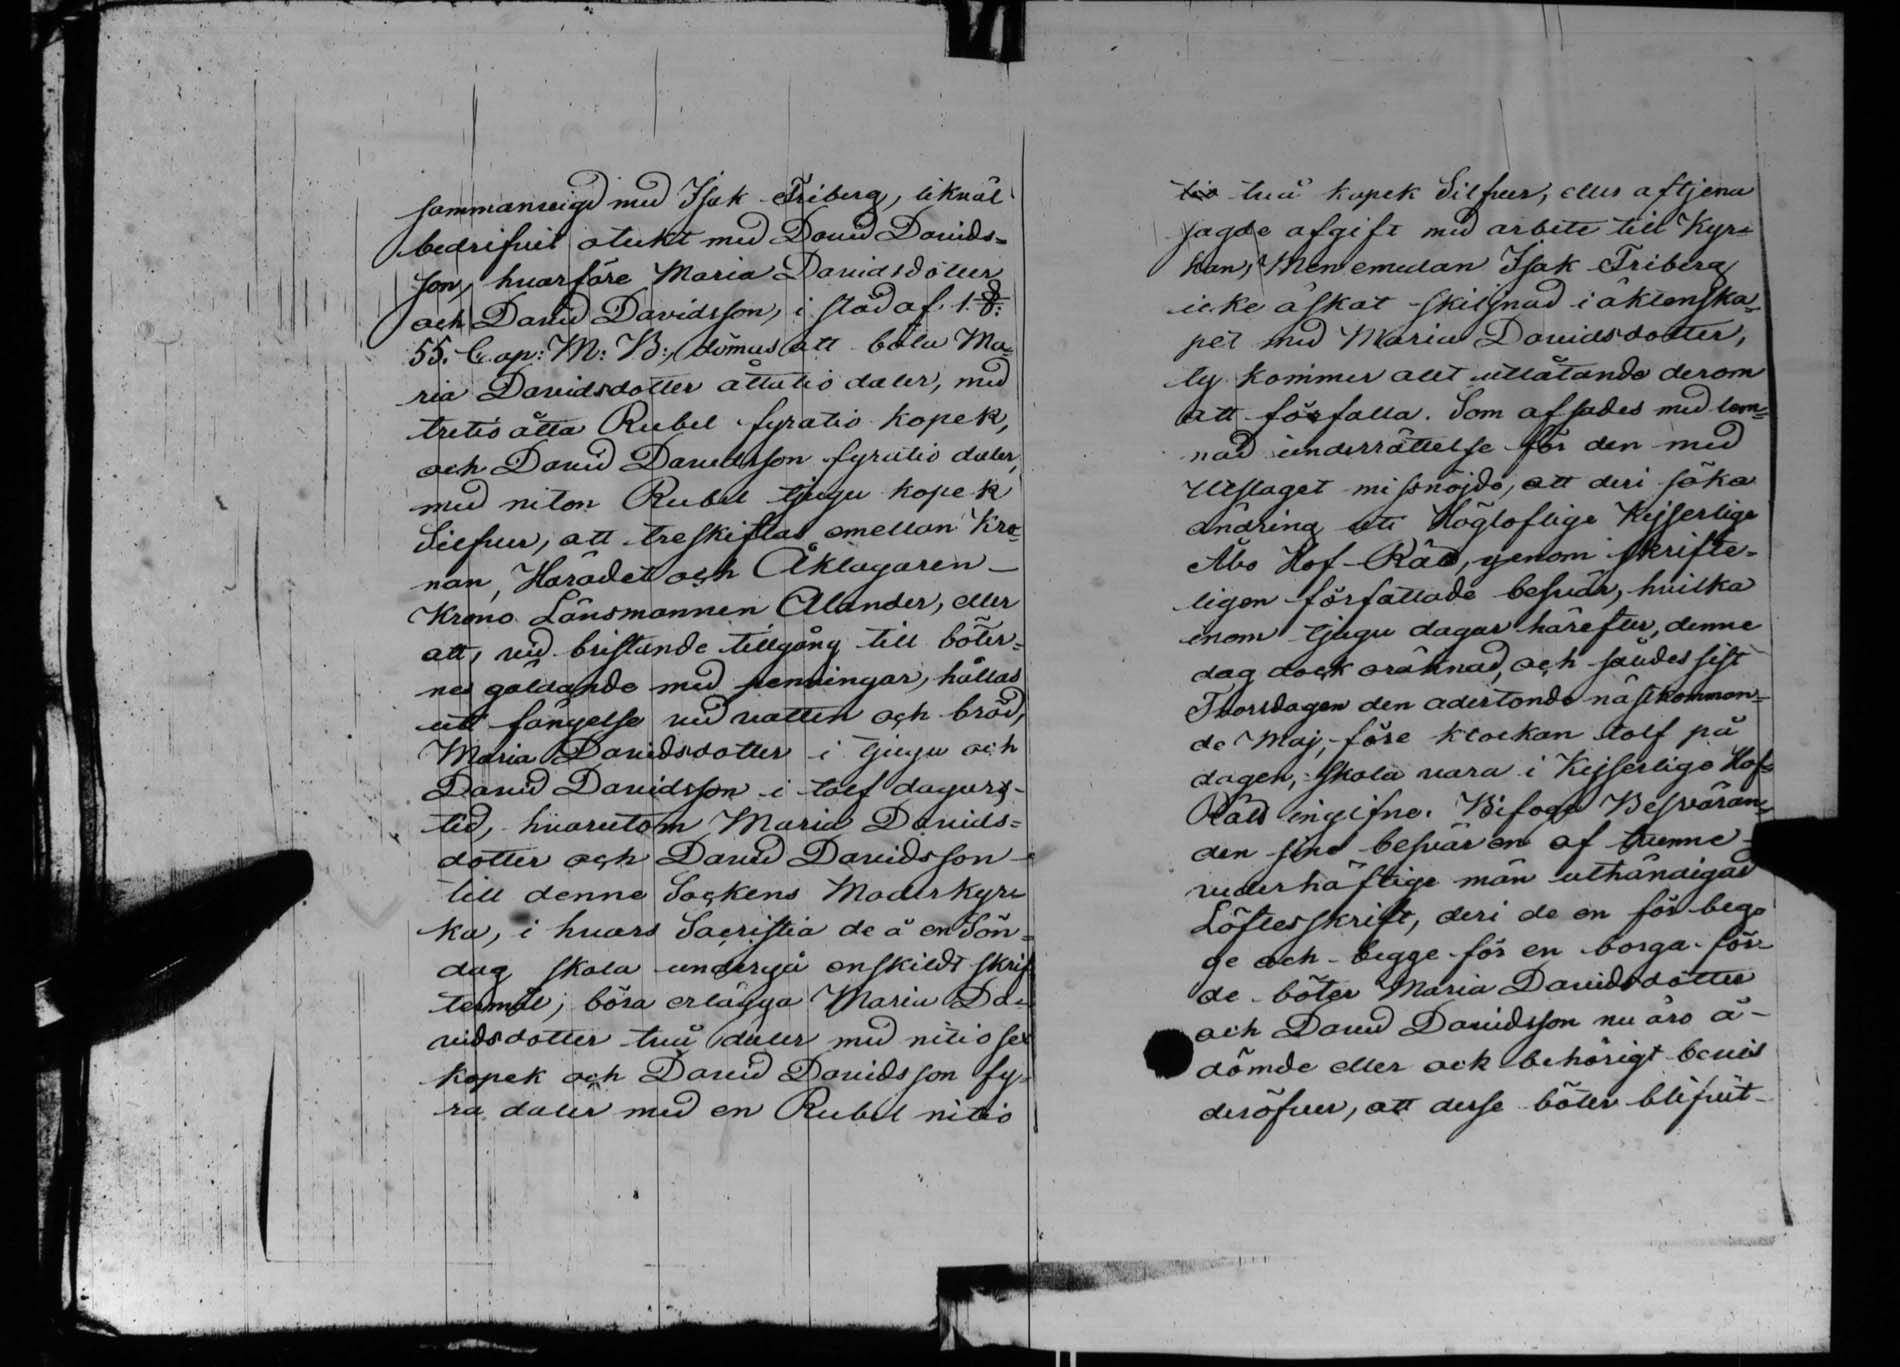 sammanvigd med Isak Friberg, likväl
bedrifvit otukt med David Davids-
son, hvarföre Maria Davidsdotter
och David Davidsson, i stöd af 1. §.
55. Cap: M: B:, dömas att böta Ma-
ria Davidsdotter åttatio daler, med
tretio åtta Rubel fyratio kopek,
och David Davidsson fyratio daler,
med niton Rubel tjugu kopek
Silfver, att treskiftas emellan Kro-
nan, Häradet och Åklagaren
Krono Länsmannen Alander, eller
att, vid bristande tillgång till böter-
nes gäldande med penningar, hållas
uti fängelse vid vatten och bröd,
Maria Davidsdotter i tjugu och
David Davidsson i tolf dagars
tid, hvarutom Maria Davids-
dotter och David Davidsson
till denne Sockens Moderkyr-
ka, i hvars Sacristia de å en Sön-
dag skola undergå enskildt skrif-
termål, böra erlägga Maria Da-
vidsdotter två daler med nitio sex
kopek och David Davidsson fy-
ra daler med en Rubel nitio
tio två kopek Silfver, eller aftjena
sagde afgift med arbete till Kyr-
kan, Men emedan Isak Friberg
icke äskat skilsnad i äktenska-
pet med Maria Davidsdotter,
ty kommer allt utlåtande derom
att förfalla. Som afsades med lem-
nad underrättelse för den med
Utslaget missnöjde, att deri söka
ändring uti Högloflige Kejserlige
Åbo Hof-Rätt, genom skrifte-
ligen författade besvär, hvilka
inom tjugu dagar härefter, denne
dag dock oräknad, och således sist
Thorsdagen den adertonde nästkomman-
de Maj, före klockan tolf på
dagen, skola vara i Kejserlige Hof-
Rätt ingifne. Bifoge Besväran-
den sine besvär en af tvenne
vederhäftige män uthändigad
Löftesskrift, deri de en för beg-
ge och begge för en borga för
de böter Maria Davidsdotter
och David Davidsson nu äro å-
dömde eller ock behörigt bevis
deröfver, att desse böter blifvit